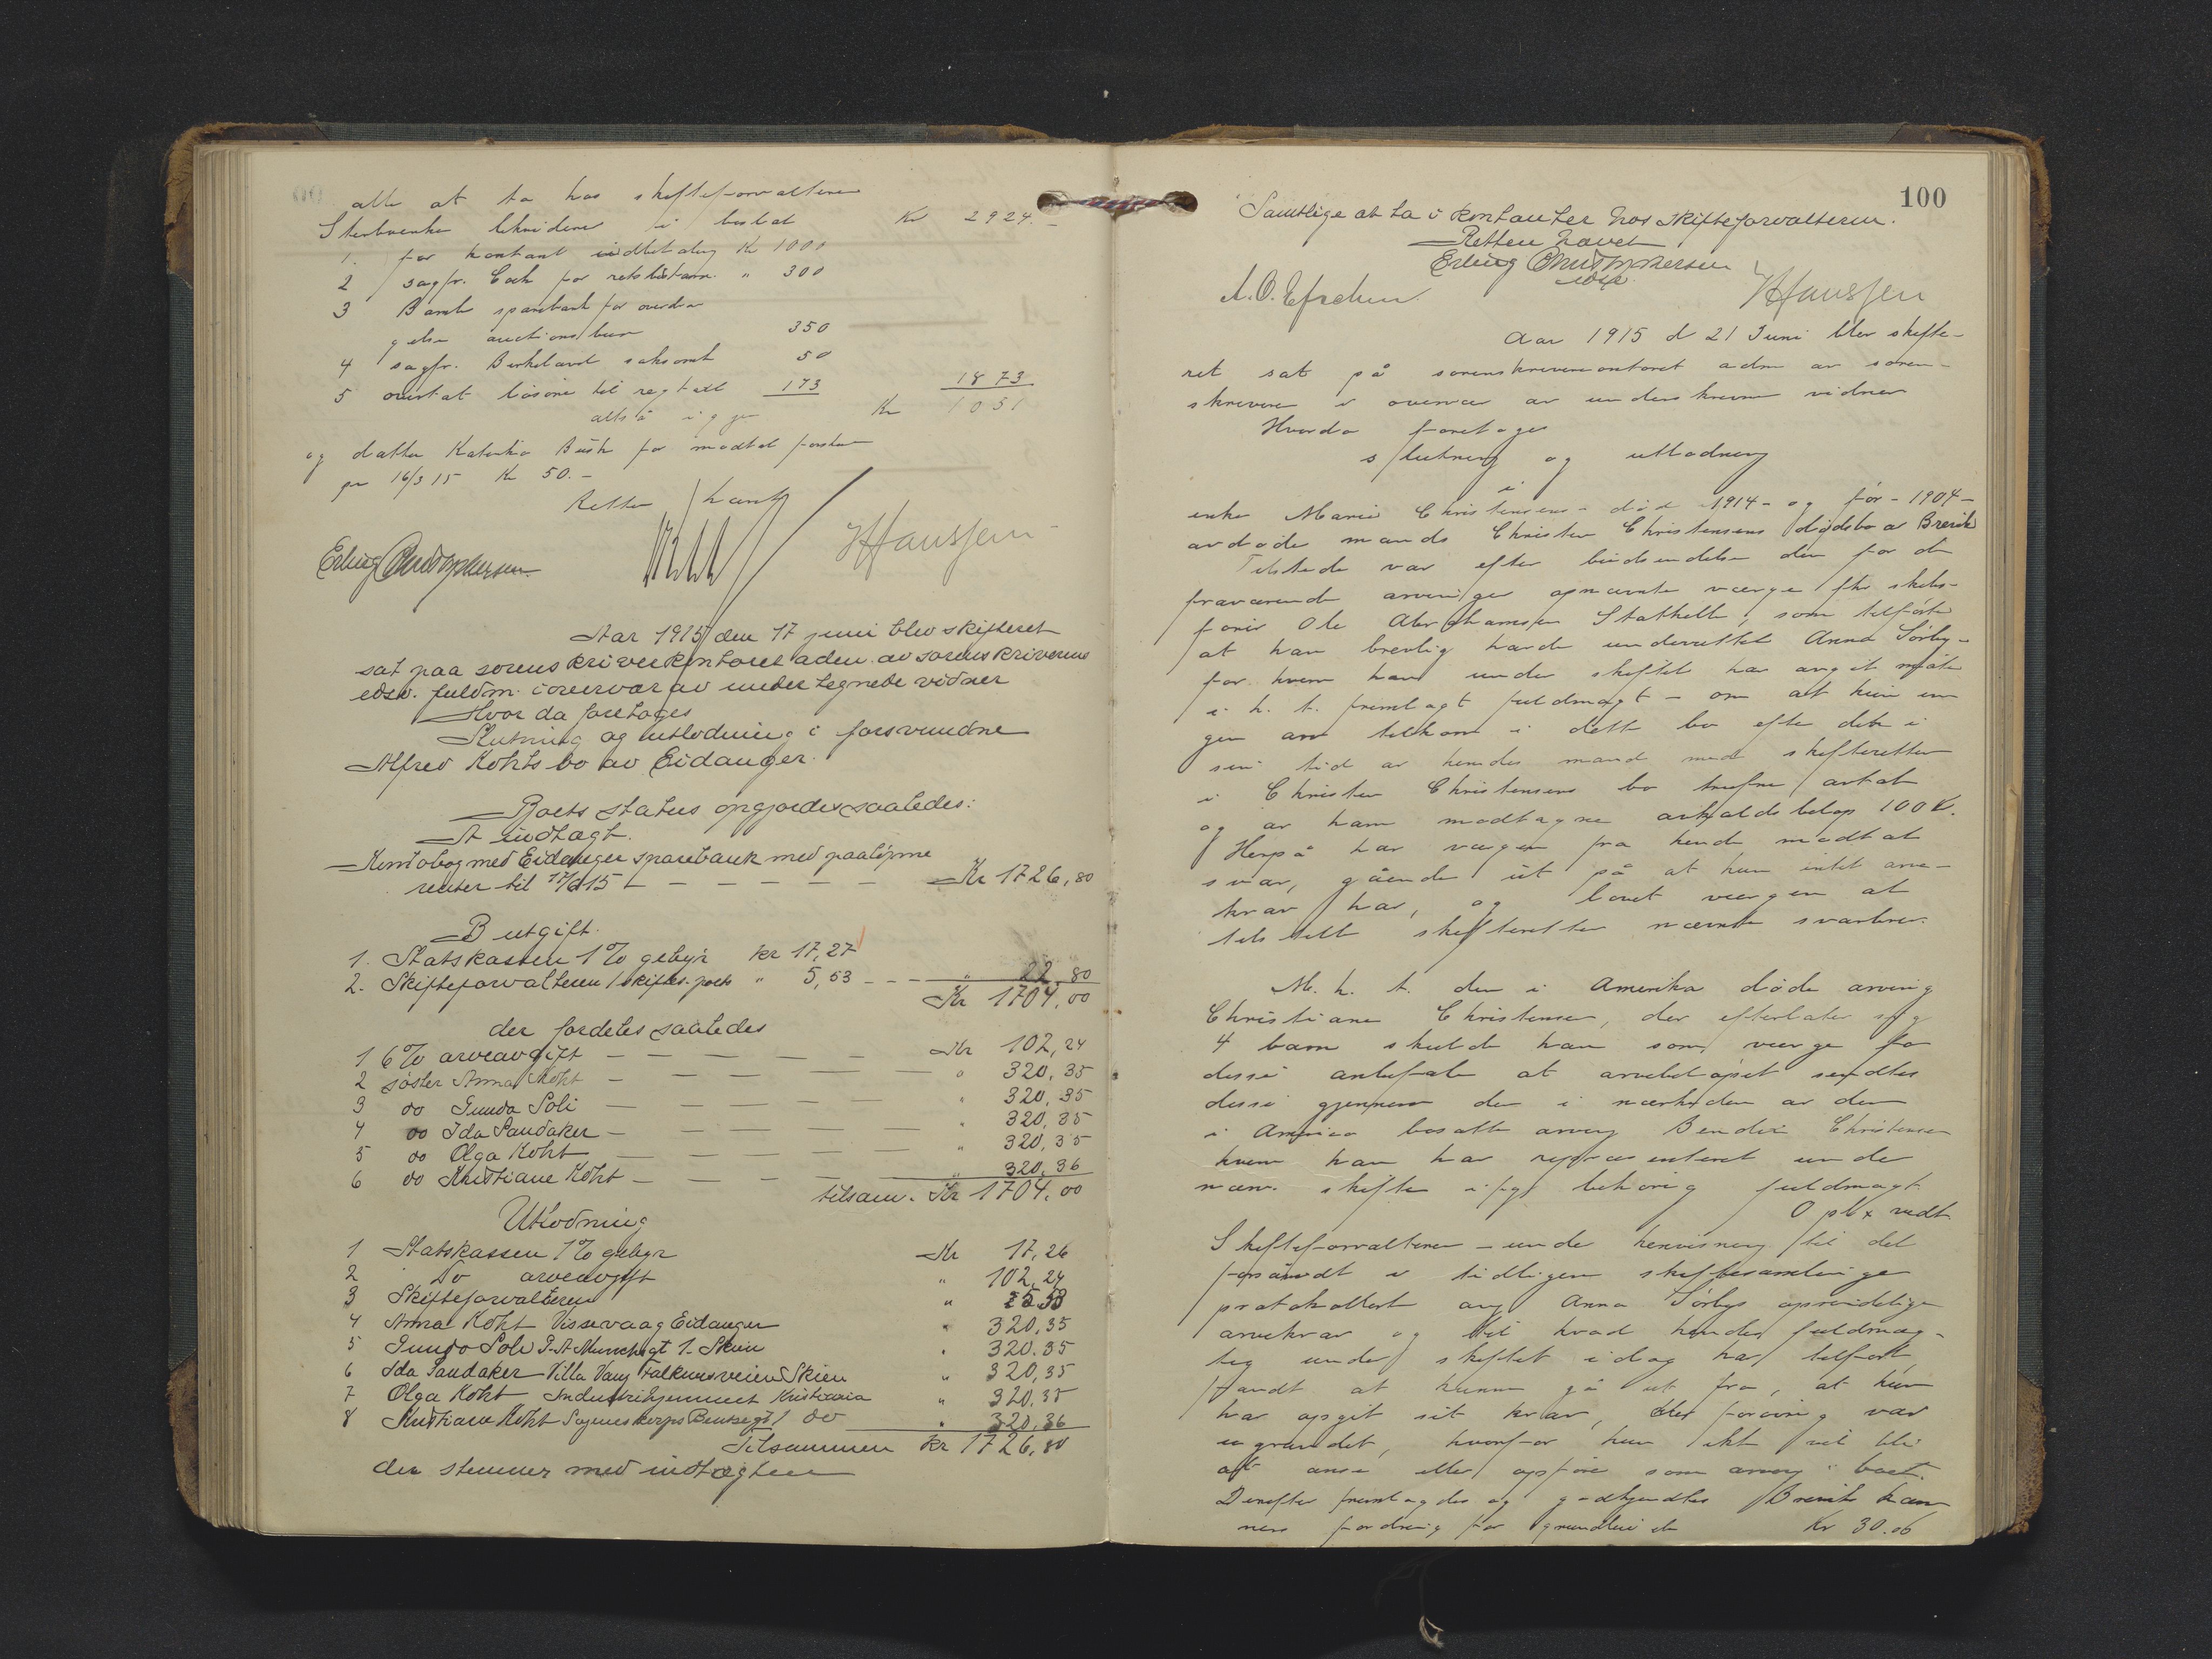 alle at ta hos skifteforvalteren
Sterbvenke likviderer i bostat Kr 2924.-
1. for kontant indbetaling Kr 1000
2 sagfr. Coch for retsbistann. " 300
3 Bamle sparebank for overdra
gelse auctionsbeve 350
4 sagfr. Birkeland saksomk 50
5 overtat løsøre til regtakst 173 1873
altså igjen Kr 1051
og datter Katinka Bush for modtat forsku
pr 16/3 15 Kr 50.-
Retten hævet
Erling Christophersen HHanssen
Aar 1915 den 17 juni blev skifteret
sat paa sorenskriverkontoret adm. av sorenskriverens
edsv. fuldm. i overvær av undertegnede vidner
Hvor da foretoges
Slutning og utlodning i forsvundne
Alfred Kohts bo av Eidanger.
Boets status opgjordes saaledes:
A indtægt.
Kontobog med Eidanger sparebank med paaløpne
renter til 17/6 15 - - - - - - Kr 1726,80
B utgift.
1. Statskassen 1% gebyr kr 17,27
2. Skifteforvalteren skiftes. porto " 5,53 - - - " 22,80
Kr 1704,00
der fordeles saaledes
1 6% arveavgift - - - - - - Kr 102,24
2 søster Anna Koht - - - - - " 320,35
3 do Gunda Soli - - - - - " 320,35
4 do Ida Sandaker - - - - - " 320,35
5 do Olga Koht - - - - - " 320,35
6 do Kristiane Koht - - - - " 320,36
tilsam. Kr 1704,00
Utlodning
1 Statskassen 1% gebyr Kr 17,26
2 Do arveavgift " 102,24
3 Skifteforvalteren " 5.53
4 Anna Koht Vissevaag Eidanger " 320,35
5 Gunda Soli P. A. Munchsgt 1. Skien " 320.35
6 Ida Sandaker Villa Vang Falkumsveien Skien " 320,35
7 Olga Koht Industrihjemmet Kristiania " 320,35
8 Kristiane Koht do " 320,36
Tilsammen Kr 1726,80
der stemmer med indtægten
100
Samtlige at ta i kontanter hos skifteforvalteren.
Retten hævet
Erling Christophersen
edsv.
HHanssen
Aar 1915 d 21 Juni blev skifte-
ret sat på sorenskriverkontoret adm av soren-
skriveren i overvær av underskrevne vidner
Hvorda foretoges
slutning og utlodning
i
enke Marie Christensens - død 1914 - og før - 1904 -
avdøde mands Christen Christensens dødsbo av Brevik
Tilstede var efter budsendelse den for de
fraværende arvinger opnævnte værge fhv skibs-
fører Ole Abrahamsen Stathelle, som tilførte
at han brevlig havde underrettet Anna Sørby -
for hvem han under skiftet har avgit møte
i h. t. fremlagt fuldmagt - om at hun in
gen arv tilkom i dette bo efter den i
sin tid av hendes mand med skifteretten
i Christen Christensens bo trufne avtale
og av ham modtagne avkaldsbeløp 100 Kr.
Herpå har værgen fra hende modtat
svar, gående ut på at hun intet arve-
krav har, og lovet værgen at
tilstille skifteretten nævnte svarbrev.
M. h. t. den i Amerika døde arving
Christiane Christensen, der efterlater sig
4 barn skulde han som værge for
disse anbefale at arvebeløpet sendtes
disse gjennem den i nærheden av dem
i America bosatte arving Bendix Christensen
hvem han har repræsenteret under
nærv. skifte ifgl behørig fuldmagt.
Oplæst vedt.
Skifteforvalteren - under henvisning til det
forsåvidt i tidligere skiftesamlinger
protokollert ang Anna Sørbys oprindelige
arvekrav og til hvad hendes fuldmæg-
tig under skiftet idag har tilført
fandt at kunne gå ut fra, at hun
har opgit sit krav, der forøvrig var
ugrundet, hvorfor hun ikke vil bli
at anse eller opføre som arving i boet.
Derefter fremlagdes og godkjendtes Brevik kæm
ners fordring for grundleie de Kr 30.06